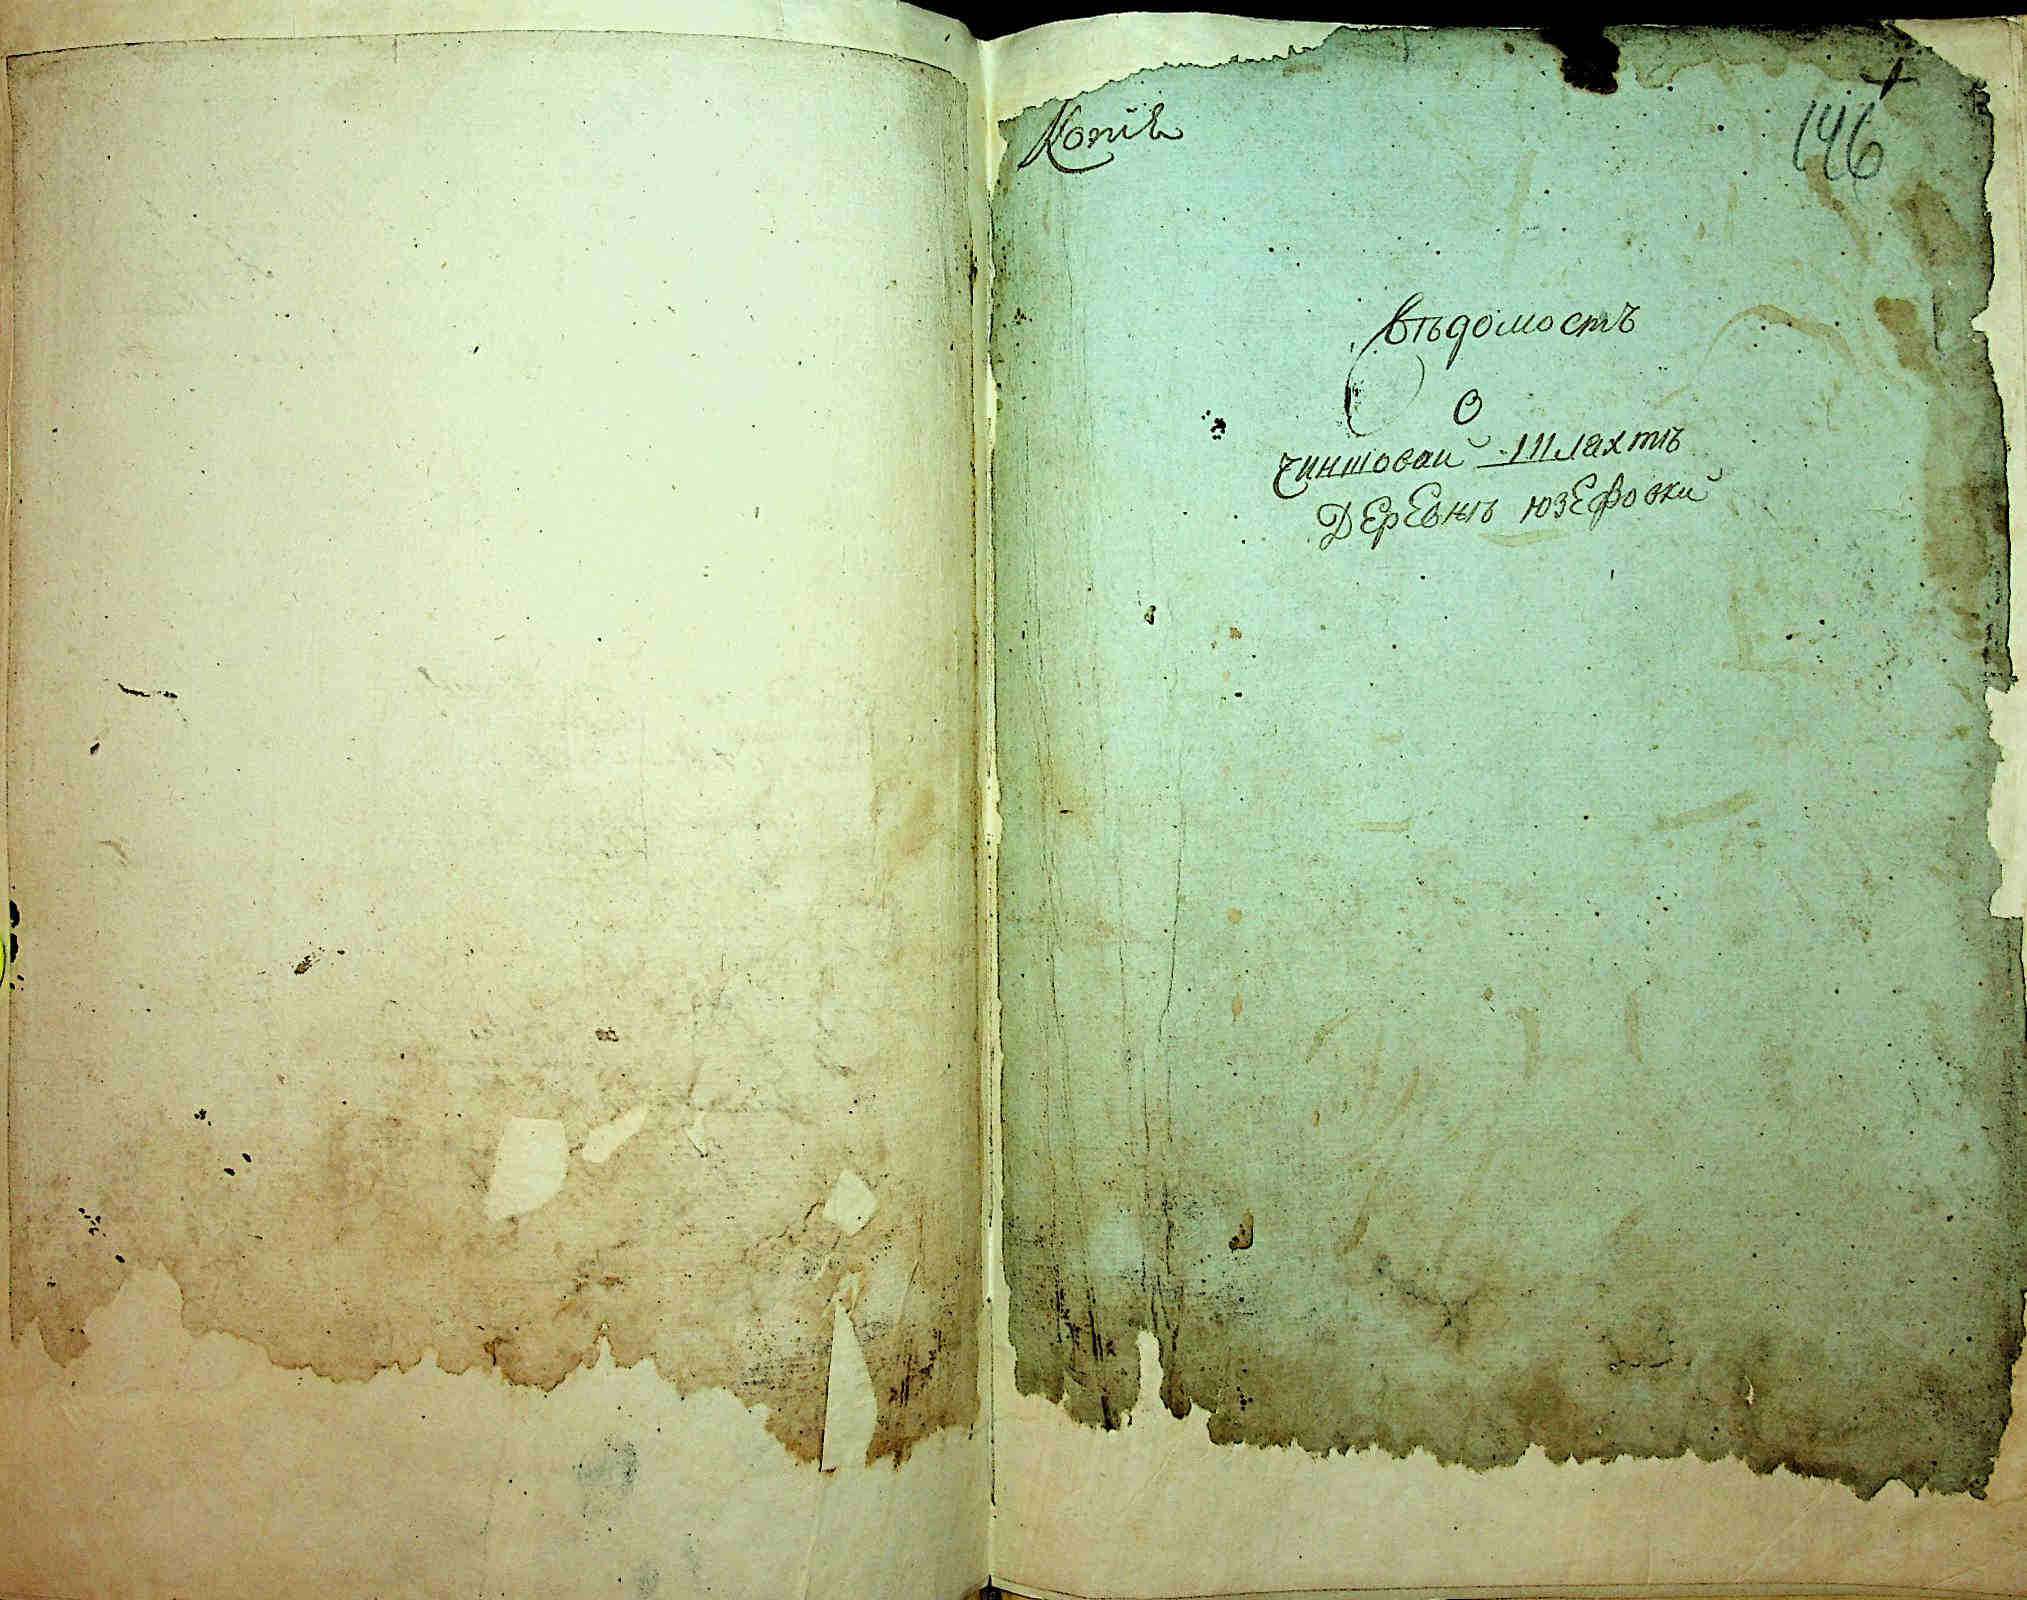 Копiя
146
Вѣдомостъ
О
чиншовай Шлахтѣ
Деревнѣ Юзефовки